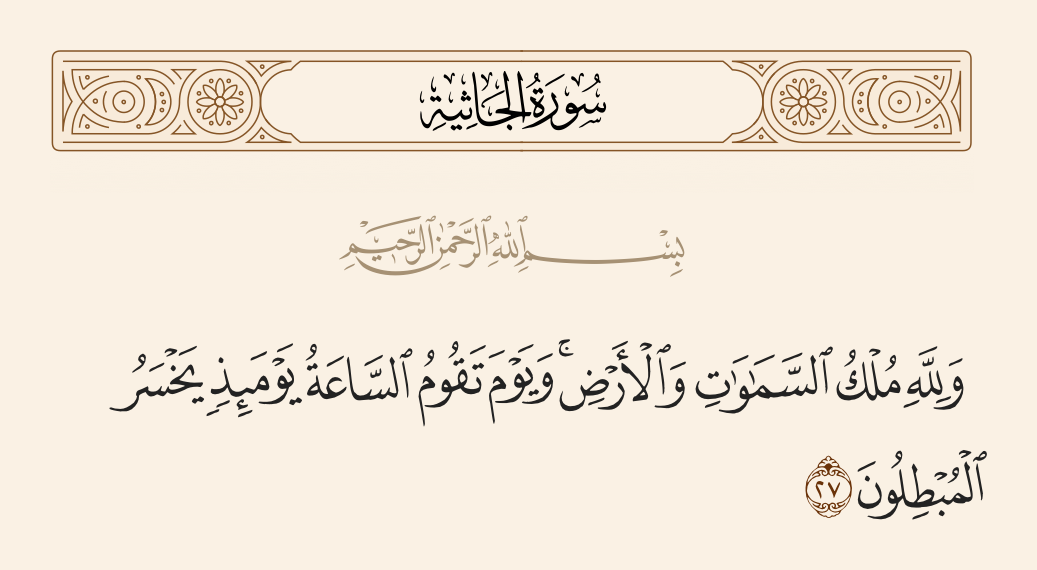 سُورَةُ الجَاثِيَةِ
بِسْمِ ٱللَّهِ ٱلرَّحْمَٰنِ ٱلرَّحِيمِ
وَلِلَّهِ مُلْكُ ٱلسَّمَٰوَٰتِ وَٱلْأَرْضِ ۚ وَيَوْمَ تَقُومُ ٱلسَّاعَةُ يَوْمَئِذٍ يَخْسَرُ
ٱلْمُبْطِلُونَ ٢٧